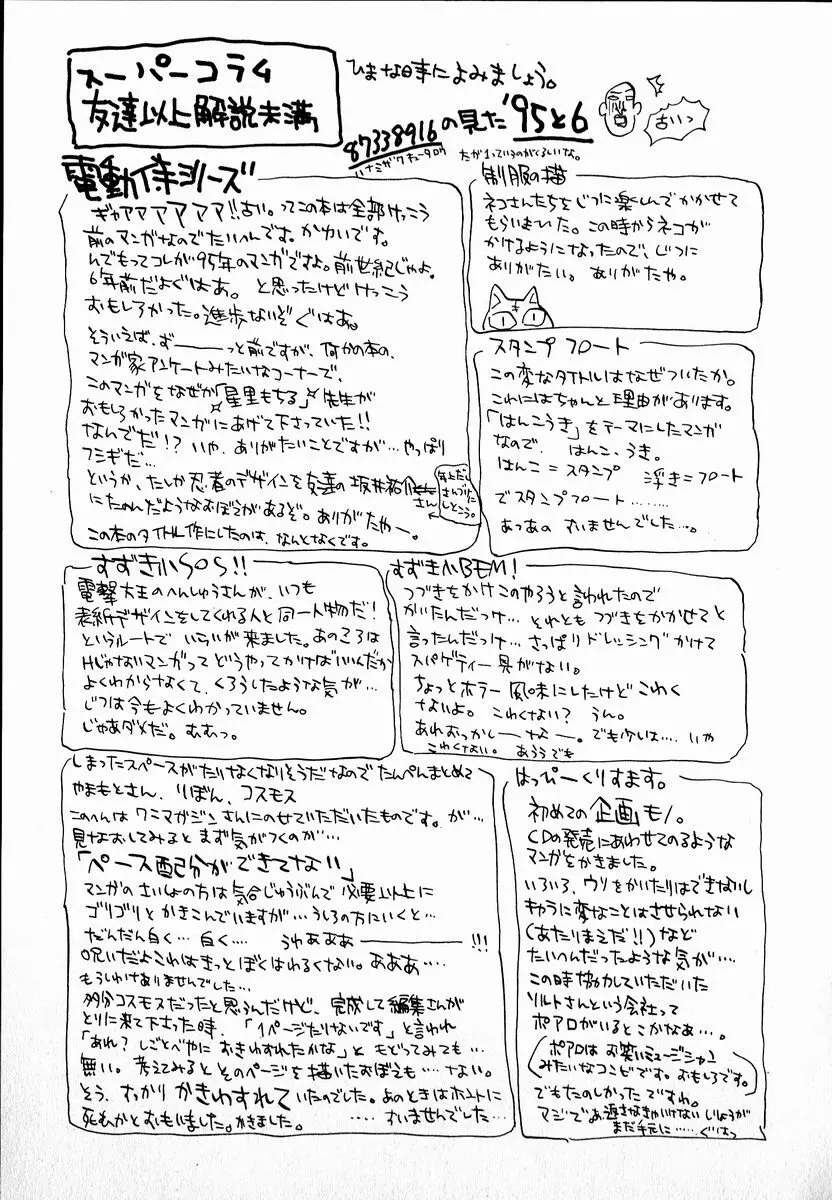 スーパーコラム
友達以上解説未満
ひまな時によみましょう。
87338916の見た'95と6
ハナミザワキュータロウ
古いっ
電動侍シリーズ
ギャアアアアアア!!古い。ってこの本は全部けっこう
前のマンガなのでたいへんです。かわいです。
んでもってコレが95年のマンガですよ。前世紀じゃよ。
6年前だよぐはあ。と思ったけどけっこう
おもしろかった。進歩ないぞぐはあ。
そういえば、ず――――っと前ですが、何かの本の、
マンガ家アンケートみたいなコーナーで、
このマンガをなぜか「星里もちる」先生が
おもしろかったマンガにあげて下さっていた!!
なんでだ!?いや、ありがたいことですが…やっぱり
フシギだ…
というか、たしか忍者のデザインを友達の坂井祐介さん
にたのんだようなおぼえがあるぞ。ありがたやー。
この本のタイトル作にしたのは、なんとなくです。
制服の猫
ネコさんたちをじつに楽しんでかかせて
もらいました。この時からネコが
かけるようになったので、じつに
ありがたい。ありがたや。
スタンプフロート
この変なタイトルはなぜついたか。
これにはちゃんと理由があります。
「はんこうき」をテーマにしたマンガ
なので、はんこ、うき。
はんこ=スタンプ 浮き=フロート
でスタンプフロート………
あつあの すいませんでした…。
すずき小SOS!!
電撃大王のへんしゅうさんが、いつも
表紙デザインをしてくれる人と同一人物だ!
というルートで いらいが来ました。あのころは
Hじゃないマンガって どうやってかけばいいんだか
よくわからなくて、くろうしたような気が…
じつは今もよくわかっていません。
じゃあダメだ。むむっ。
すずき小BEM!
つづきをかけこのやろうと言われたので
かいたんだっけ…それともつづきをかかせてと
言ったんだっけ…さっぱりドレッシングかけて
スパゲティー具がない。
ちょっとホラー風味にしたけどこわく
ないよ。こわくない?うん。
あれむっかしーなー。でも少しは…いや
こわくない。あろうでも
しまったスペースがたりなくなりそうだなのでたんぺんまとめて
やまもとさん、りぼん、コスモス
このへんはワニマガジンさんにのせていただいたものです。が…
見なおしてみるとまず気がつくのが…
「ペース配分ができてない」
マンガのさいしょの方は気合じゅうぶんで必要以上に
ゴリゴリとかきこんでいますが…うしろの方にいくと…
だんだん白く…白く… うわあああ――――――!!!
呪いだよこれはきっとぼくはわるくない。あああ…
もうしわけありませんでした…
多分コスモスだったと思うんだけど、完成して編集さんが
とりに来て下さった時、「1ページたりないです」と言われ
「あれ?しごとべやにおきわすれたかな」ともどってみても…
無い。考えてみるとそのページを描いたおぼえも…ない。
そう、すっかりかきわすれていたのでした。あのときはホントに
死むかとおもいました。かきました。 ……すいませんでした…
はっぴーくりすます。
初めての企画モノ。
CDの発売にあわせてのるような
マンガをかきました。
いろいろ、ウリをかいたりはできないし
キャラに変なことはさせられない
(あたりまえだ!!)など
たいへんだったような気が…
この時協力していただいた
ソルトさんという会社って
ポアロがいるとこかなあ…。
(ポアロはお笑いミュージシャン
みたいなコンビです。おもしろです。)
でもたのしかったですわ。
マジであ返さなきゃいけないしりょうが
まだ手元に……ぐはっ